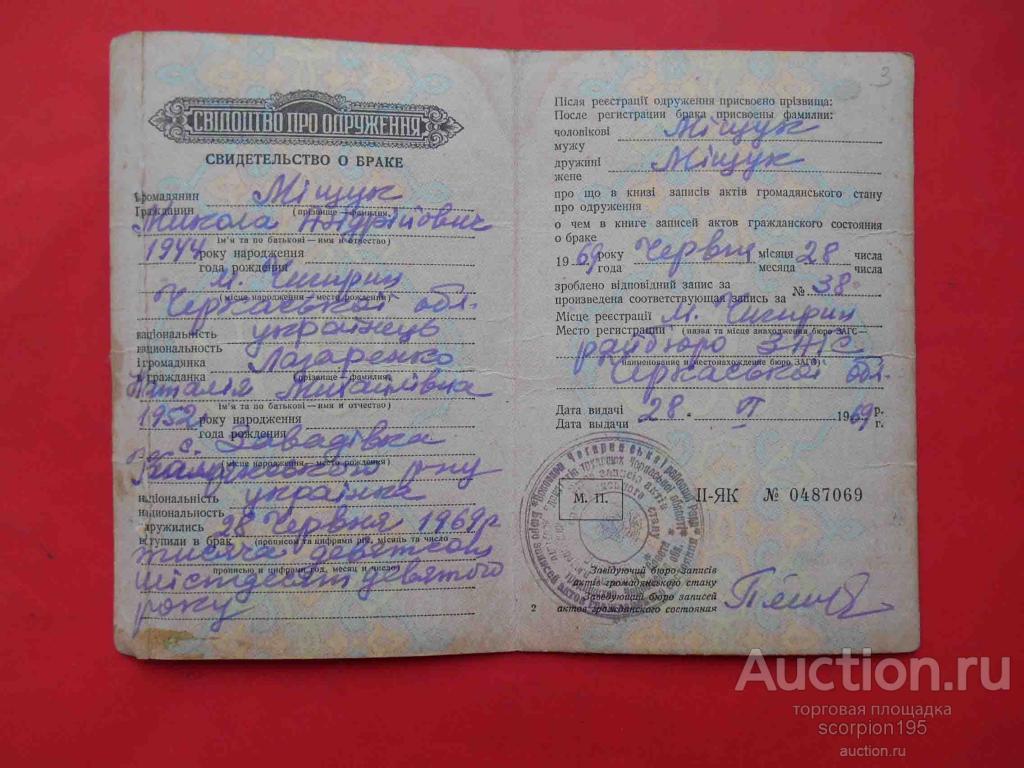 СВІДОЦТВО ПРО ОДРУЖЕННЯ
СВИДЕТЕЛЬСТВО О БРАКЕ
Громадянин
Гражданин Міщук
(прізвище — фамилия)
Микола Андрійович
(ім'я та по батькові — имя и отчество)
1944 року народження
года рождения
м. Чигирин
(місце народження — место рождения)
Черкаської обл.
національність
национальность українець
і громадянка
и гражданка Лазаренко
(прізвище — фамилия)
Наталія
(ім'я та по батькові — имя и отчество)
1952 року народження
года рождения
с. Завадівка
(місце народження — место рождения)
р-ну
національність
национальность українка
одружились
вступили в брак 28 Червня 1969 р
(прописом та цифрами рік, місяць та число
тисяча девятсот
прописью и цифрами год, месяц и число)
шістдесят девятого
року
3
Після реєстрації одруження присвоєно прізвища:
После регистрации брака присвоены фамилии:
чоловікові
мужу Міщук
дружині
жене Міщук
про що в книзі записів актів громадянського стану
про одруження
о чем в книге записей актов гражданского состояния
о браке
1969 року Червня місяця 28 числа
года месяца числа
зроблено відповідний запис за
произведена соответствующая запись за № 38
Місце реєстрації м. Чигирин
Место регистрации (назва та місце знаходження бюро ЗАГС—
райбюро ЗАГС
наименование и местонахождение бюро ЗАГС)
Черкаської обл.
Дата видачі
Дата выдачи 28 VI 1969 р.
г.
М. П.
II-ЯК № 0487069
Завідуючий бюро записів
актів громадянського стану
Заведующий бюро записей
актов гражданского состояния
2
Auction.ru
торговая площадка
scorpion195
auction.ru